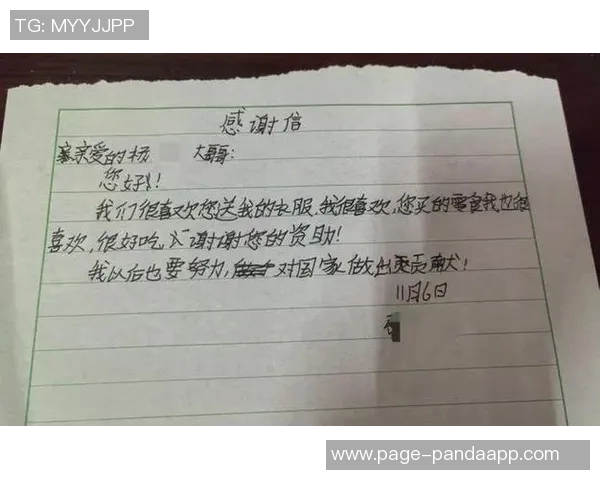 TG: MYYJJPP
感谢信
亲爱的杨 大哥哥:
您好!
我们很喜欢您送我的衣服,我很喜欢,您买的零食我也很
喜欢,很好吃,谢谢您的资助!
我以后也要努力,对国家做出贡献!
11月6日
www.page-pandaapp.com